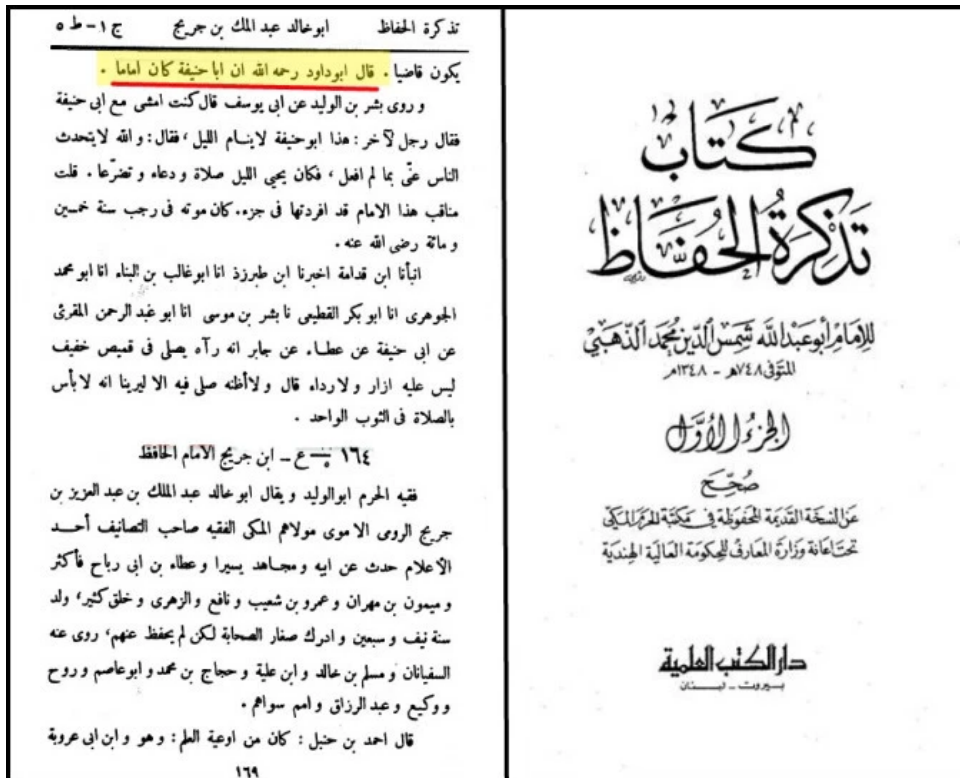 تذكرة الحفاظ ابوخالد عبد المك بن جريج ج ١ - ط ٥
يكون قاضيا . قال ابوداود رحمه الله ان ابا حنيفة كان اماما .
و روى بشر بن الوليد عن ابى يوسف قال كنت امشى مع ابى حنيفة
فقال رجل لآخر : هذا ابوحنيفة لاينام الليل ، فقال : و الله لايتحدث
الناس عنّى بما لم افعل ، فكان يحيى الليل صلاة و دعاء و تضرّعا . قلت
مناقب هذا الامام قد افردتها فى جزء. كان موته فى رجب سنة خمسين
و مائة رضى الله عنه .
انبأنا ابن قدامة اخبرنا ابن طبرزذ انا ابوغالب بن البناء انا ابو محمد
الجوهرى انا ابو بكر القطيعى نا بشر بن موسى انا ابو عبد الرحمن المقرئ
عن ابى حنيفة عن عطاء عن جابر انه رآه يصلى فى قميص خفيف
ليس عليه ازار و لا رداء قال و لا أظنه صلى فيه الا ليرينا انه لا بأس
بالصلاة فى الثوب الواحد .
١٦٤ ع - ابن جريج الامام الحافظ
فقيه الحرم ابوالوليد و يقال ابو خالد عبد الملك بن عبد العزيز بن
جريج الرومى الاموى مولاهم المكى الفقيه صاحب التصانيف أحد
الأعلام حدث عن ابيه و مجاهد يسيرا و عطاء بن ابى رباح فأكثر
و ميمون بن مهران و عمرو بن شعيب و نافع و الزهرى و خلق كثير، ولد
سنة نيف و سبعين و ادرك صغار الصحابة لكن لم يحفظ عنهم، روى عنه
السفيانان و مسلم بن خالد و ابن علية و حجاج بن محمد و ابوعاصم و روح
و وكيع و عبد الرزاق و امم سواهم .
قال احمد بن حنبل : كان من اوعية العلم : و هو و ابن ابى عروبة
١٦٩
كتاب
تذكرة الحفاظ
للإمام أبو عبد الله شمس الدين محمد الذهبي
المتوفى ٧٤٨هـ - ١٣٤٨م
الجزء الأول
صُحِّحَ
عن النسخة القديمة المحفوظة في مكتبة الحرم المكي
تحت إعانة وزارة المعارف للحكومة العالية الهندية
دار الكتب العلمية
بيروت - لبنان